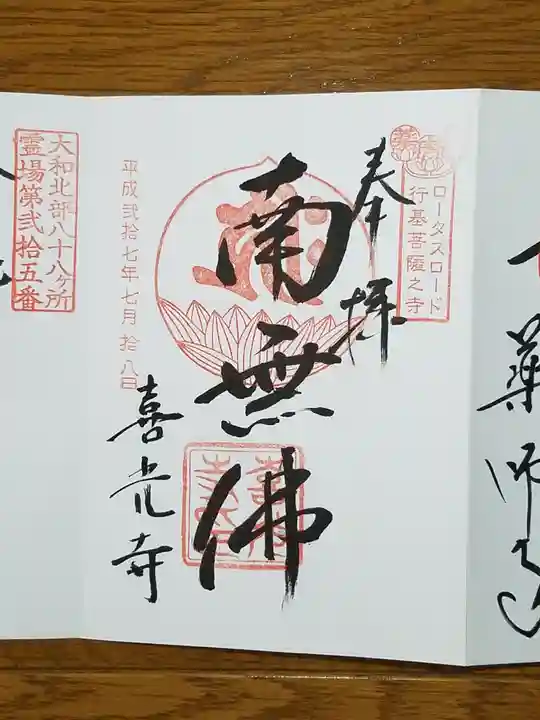 ロータスロード
行基菩薩之寺
奉拝
南無佛
平成弐拾七年七月拾八日
喜光寺
大和北部八十八ヶ所
霊場第弐拾五番
薬師